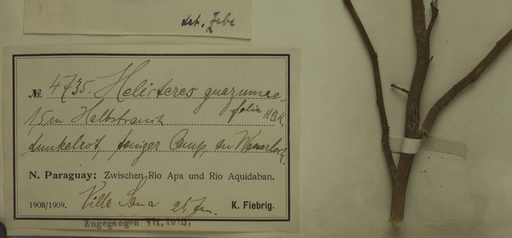 det. Zaba
№ 4735. Helicteres guazumae-
folia HBK,
1,5 m Halbstrauch
dunkelrot, Camp, an Wasserloch,
N. Paraguay: Zwischen Rio Apa und Rio Aquidaban.
1908/1909. Villa Sana 25 Jan. K. Fiebrig.
Zugegangen VII.